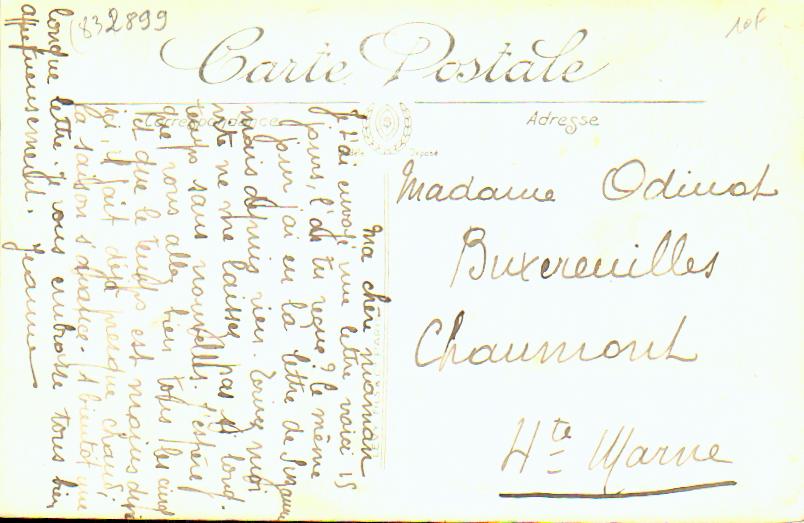 (832899
10F
Carte Postale
Correspondance
Adresse
Madame Odinot
Buxereuilles
Chaumont
Hte Marne
Ma chère maman
Je t'ai envoyé une lettre voici 15
jours, l'as tu reçue, le même
jour j'ai eu la lettre de Suzanne
mais depuis rien. Ecrivez moi
vite ne me laissez pas si long-
temps sans nouvelles. J'espère
que vous allez bien tous les cinq
et que le temps est moins dur
ici, il fait déjà presque chaud
la saison s'avance. A bientôt une
longue lettre. Je vous embrasse tous bien
affectueusement. Jeanne